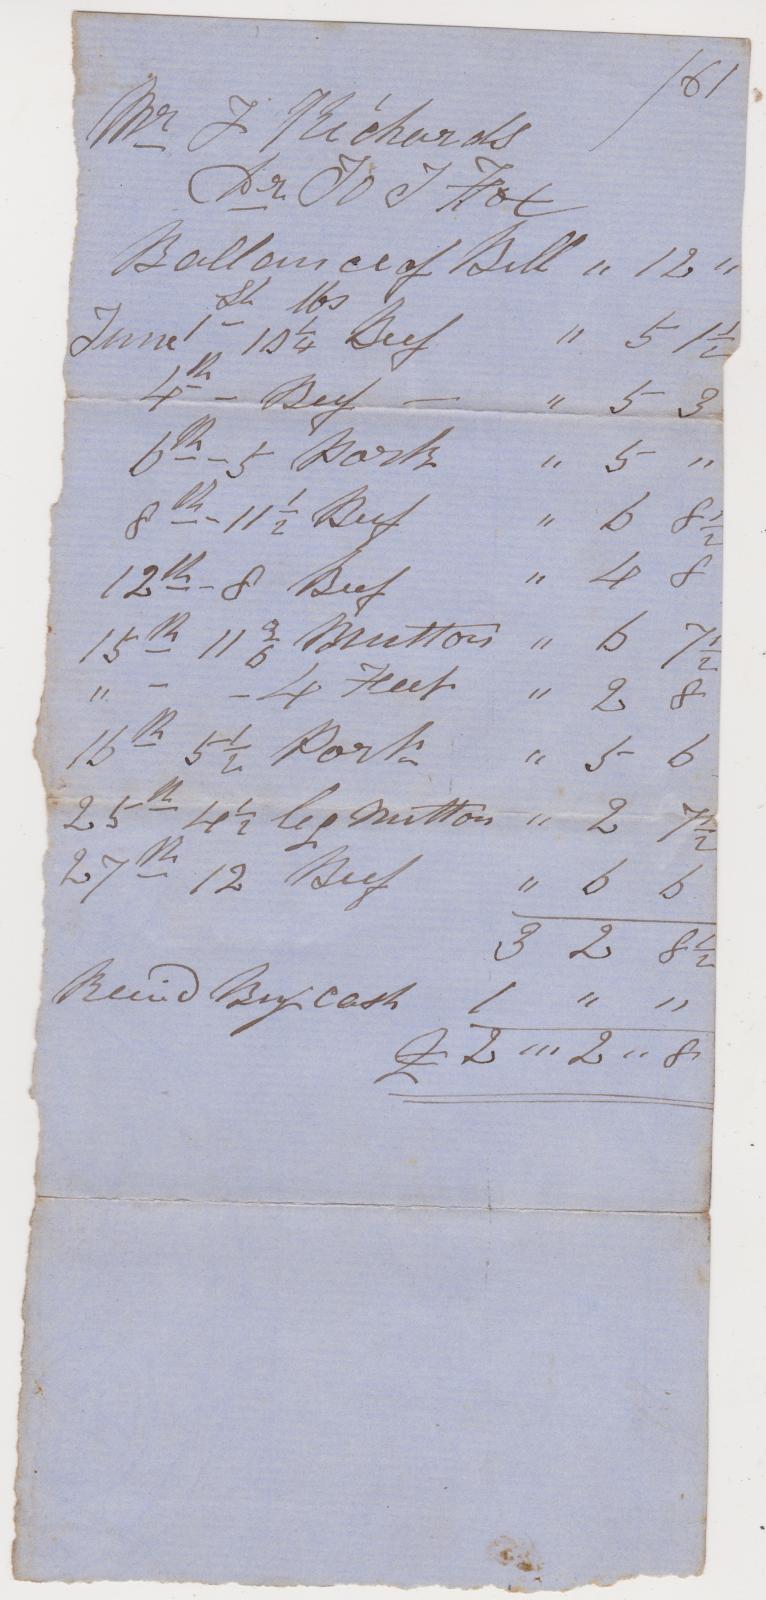 /61
Mr J Richards
Dr To J Fox
Ballance of Bill " 12 "
June 1st 10 1/4 lbs Beef " 5 1 1/2
4th - Beef — " 5 3
6th - 5 Pork " 5 "
8th - 11 1/2 Beef " 6 8 1/2
12th - 8 Beef " 4 8
15th 11 Mutton " 6 7 1/2
" - - 4 Feet " 2 8
16th 5 1/2 Pork " 5 6
25th 4 1/2 leg Mutton " 2 7 1/2
27th 12 Beef " 6 6
3 2 8 1/2
Receivd By cash 1 " "
£ 2 " 2 " 8